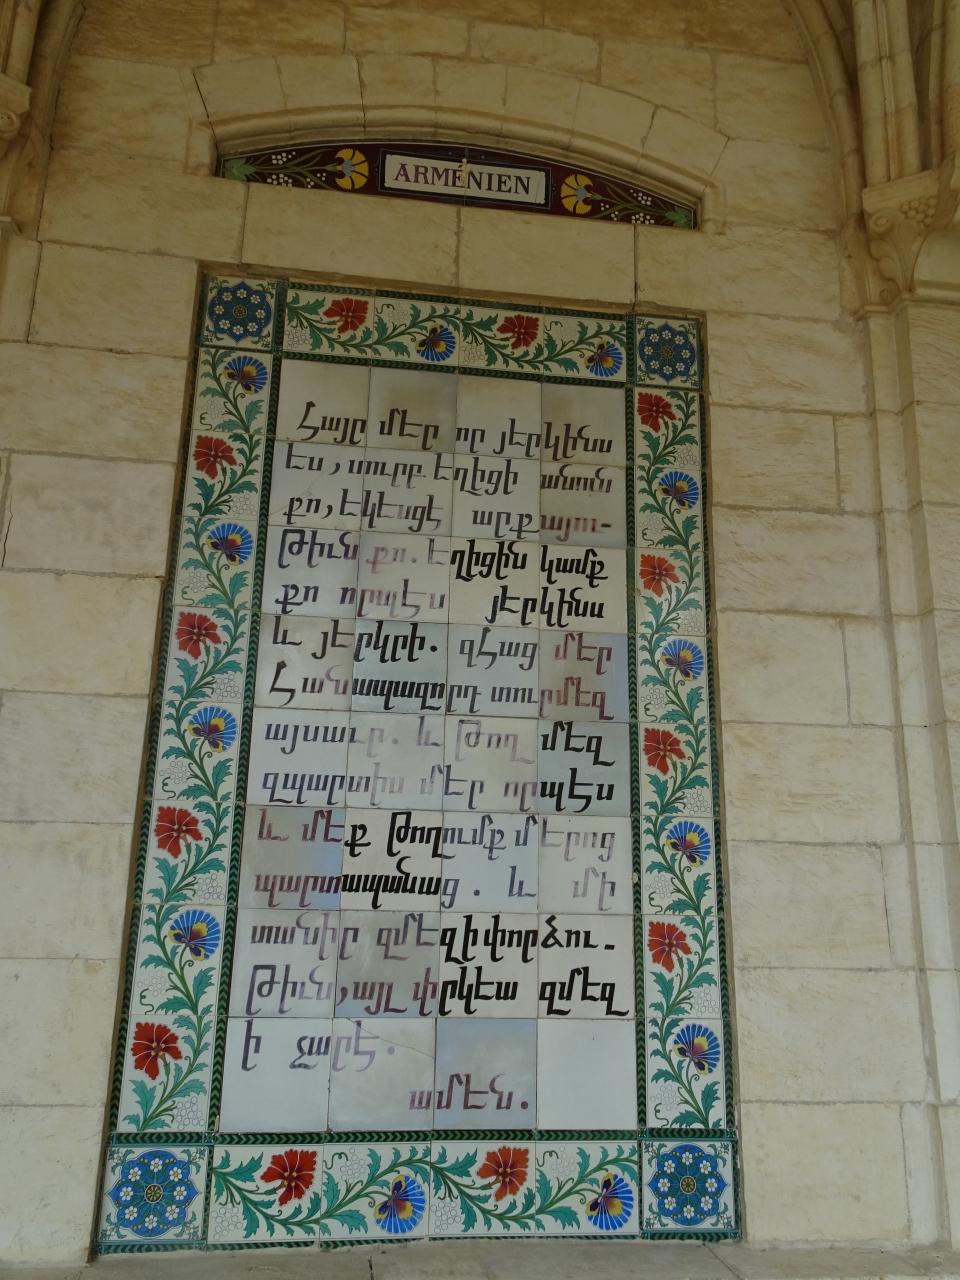 ARMÉNIEN
Հայր մեր որ յերկինս
ես, սուրբ եղիցի անուն
քո, եկեսցէ արքայու-
թիւն քո. եղիցին կամք
քո որպէս յերկինս
և յերկրի. զՀաց մեր
Հանապազորդ տուր մեզ
այսաւր. և թող մեզ
զպարտիս մեր որպէս
և մեք թողումք մերոց
պարտապանաց. և մի
տանիր զմեզ ի փորձու-
թիւն, այլ փրկեա զմեզ
ի չարէ.
ամէն.